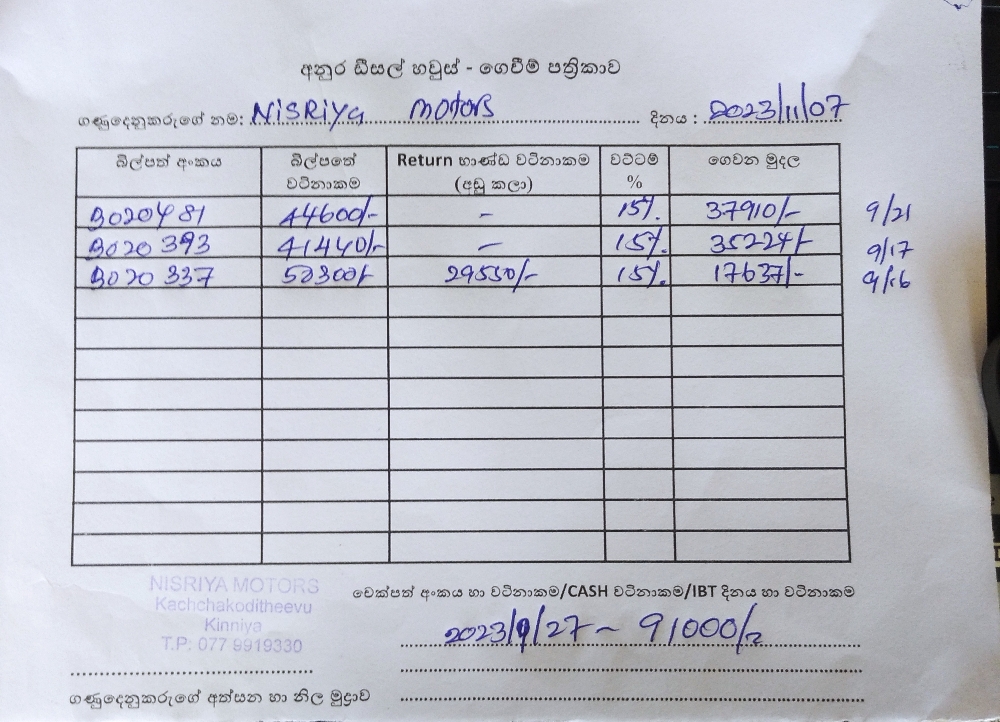 අනුර ඩීසල් හවුස් - ගෙවීම් පත්‍රිකාව
ගණුදෙනුකරුගේ නම: NISRIYA MOTORS දිනය : 2023/11/07
බිල්පත් අංකය බිල්පතේ වටිනාකම Return භාණ්ඩ වටිනාකම (අඩු කලා) වට්ටම් % ගෙවන මුදල
3020481 44600/- - 15%. 37910/- 9/21
3020393 41440/- - 15%. 35224/- 9/17
3020337 50300/- 29550/- 15%. 17637/- 9/16
NISRIYA MOTORS
Kachchakoditheevu
Kinniya
T.P: 077 9919330
චෙක්පත් අංකය හා වටිනාකම/CASH වටිනාකම/IBT දිනය හා වටිනාකම
2023/9/27 - 91000/-
ගණුදෙනුකරුගේ අත්සන හා නිල මුද්‍රාව